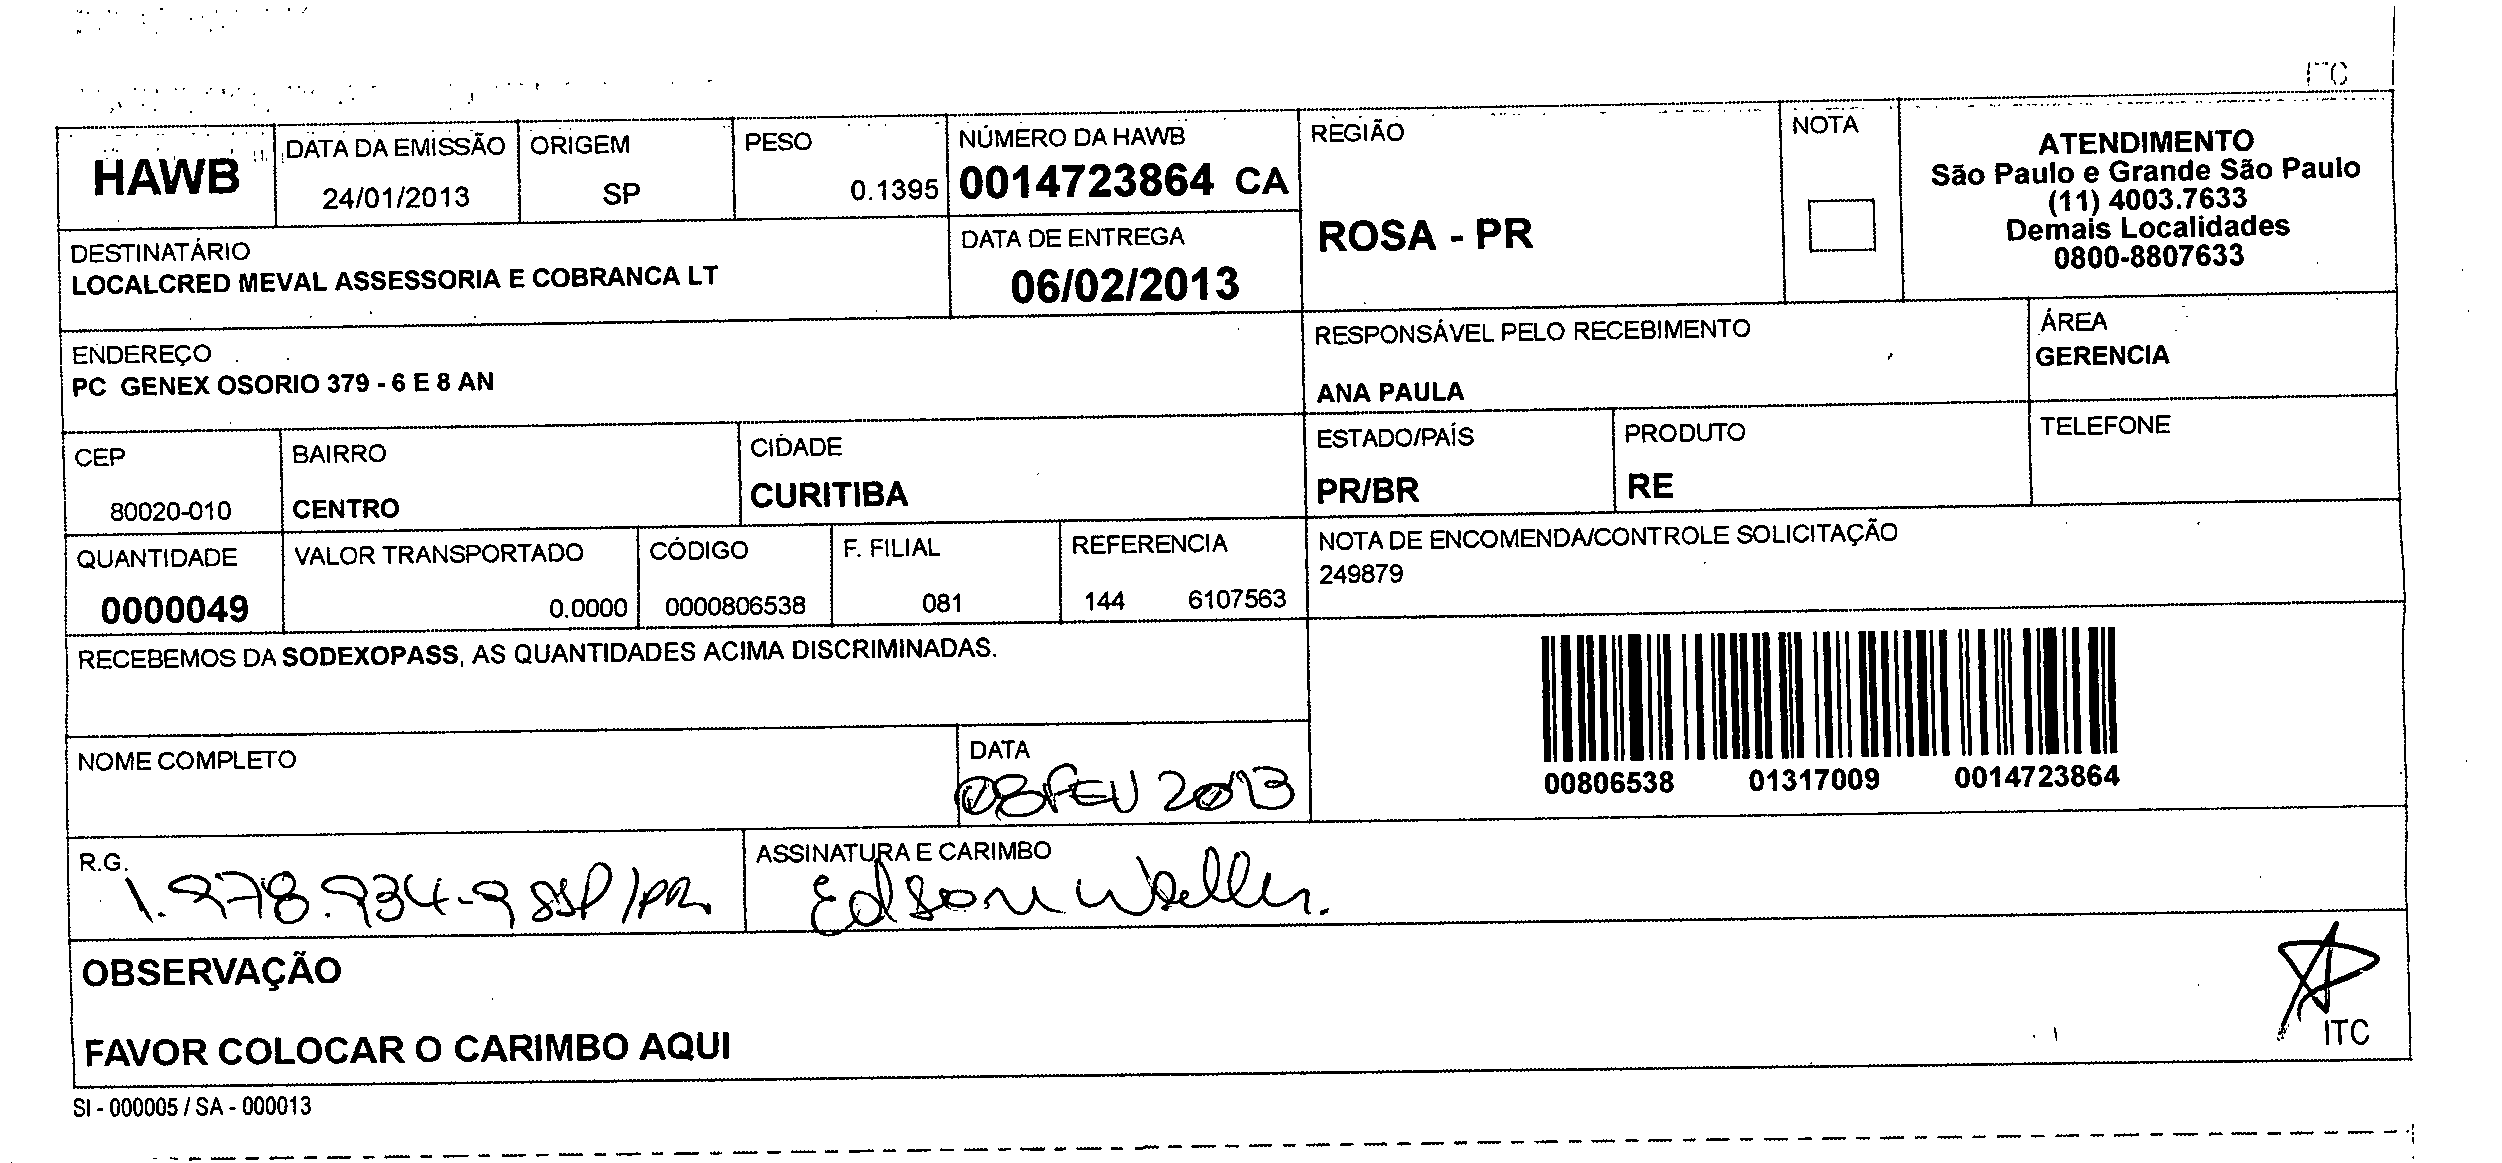 ITC
HAWB
DATA DA EMISSÃO
24/01/2013
ORIGEM
SP
PESO
0.1395
NÚMERO DA HAWB
0014723864 CA
REGIÃO
ROSA - PR
NOTA
ATENDIMENTO
São Paulo e Grande São Paulo
(11) 4003.7633
Demais Localidades
0800-8807633
DESTINATÁRIO
LOCALCRED MEVAL ASSESSORIA E COBRANCA LT
DATA DE ENTREGA
06/02/2013
ENDEREÇO
PC GENEX OSORIO 379 - 6 E 8 AN
RESPONSÁVEL PELO RECEBIMENTO
ANA PAULA
ÁREA
GERENCIA
CEP
80020-010
BAIRRO
CENTRO
CIDADE
CURITIBA
ESTADO/PAÍS
PR/BR
PRODUTO
RE
TELEFONE
QUANTIDADE
0000049
VALOR TRANSPORTADO
0.0000
CÓDIGO
0000806538
F. FILIAL
081
REFERENCIA
144 6107563
NOTA DE ENCOMENDA/CONTROLE SOLICITAÇÃO
249879
RECEBEMOS DA SODEXOPASS, AS QUANTIDADES ACIMA DISCRIMINADAS.
00806538 01317009 0014723864
NOME COMPLETO
DATA
08 FEV 2013
R.G.
1.978.934-9 SSP/PR
ASSINATURA E CARIMBO
Edson
OBSERVAÇÃO
FAVOR COLOCAR O CARIMBO AQUI
ITC
SI - 000005 / SA - 000013